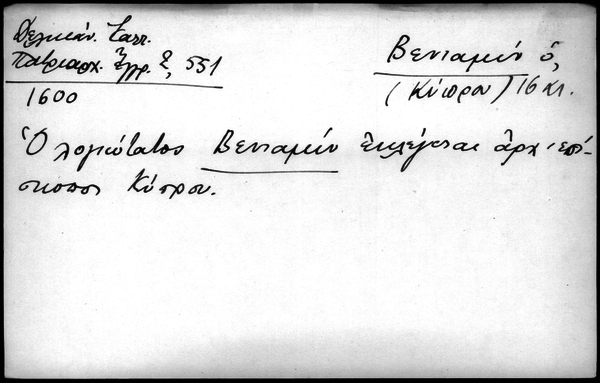 Δελικάν. Κατ.
Πατριαρχ. Ἔγγρ. Ξ, 551
1600
Βενιαμὶν ὁ,
(Κύπρου) 16 κτ.
Ὁ λογιώτατος Βενιαμὶν ἐκλέγεται ἀρχιεπί-
σκοπος Κύπρου.